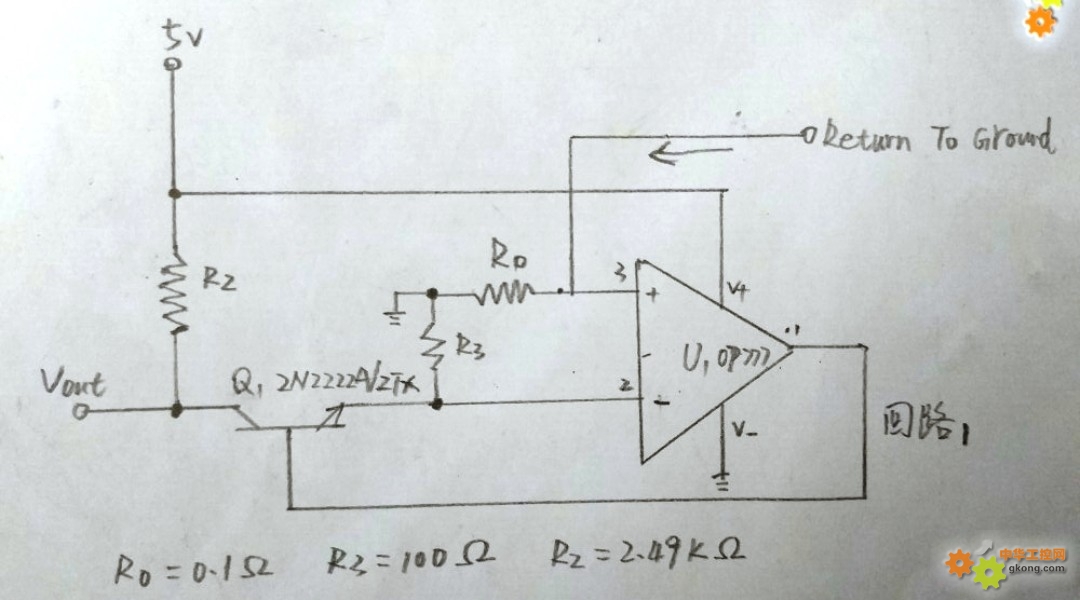 5V
Return To Ground
R2
R0
3
+
V+
R3
U1 OP777
1
2
-
Vout
Q1 2N2222A/ZTX
V-
回路1
R0 = 0.1Ω R3 = 100Ω R2 = 2.49KΩ
中华工控网
gkong.com